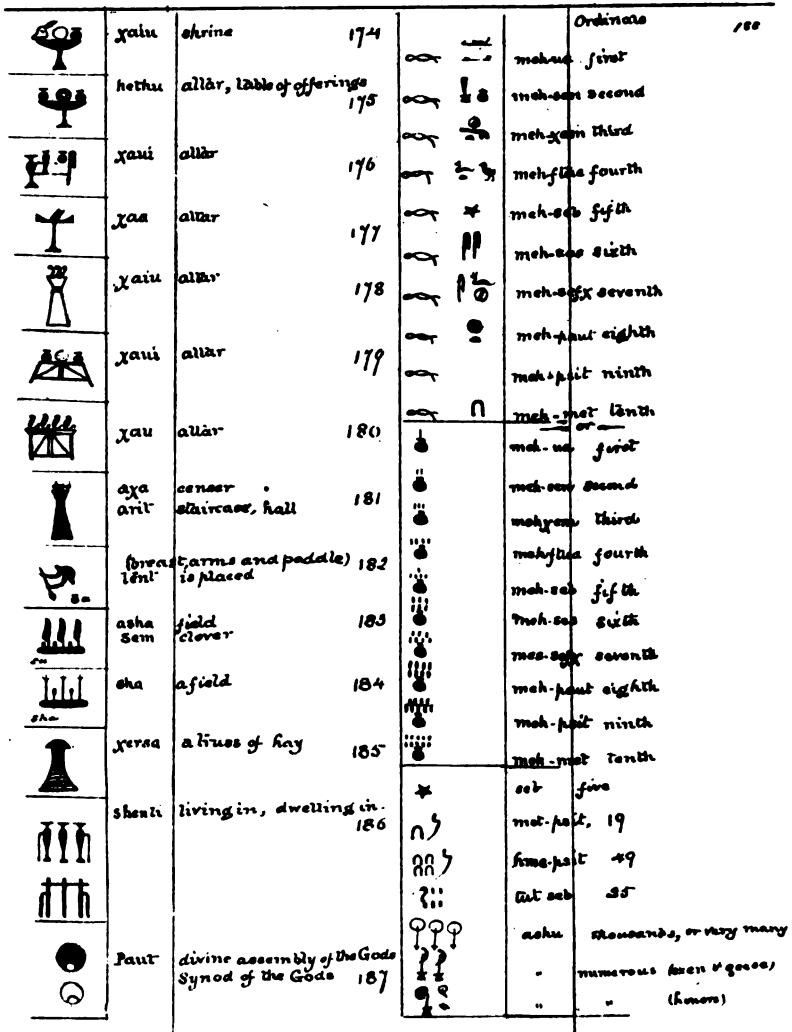 χaiu shrine 174
hethu allar, table of offerings
175
χaui allar 176
χaa allar 177
χaiu allar 178
χaui allar 179
χau allar 180
aχa censer
arit staircase, hall 181
(breast, arms and paddle) 182
tent is placed
asha field 183
sem clover
sha a field 184
sha
χersa a truss of hay 185
shenti living in, dwelling in.
186
Paut divine assembly of the Gods
Synod of the Gods 187
188
meh-ua first
meh-sen second
third
fourth
meh-seb fifth
meh-sas sixth
meh-sefχ seventh
meh-paut eighth
meh-psit ninth
meh-met tenth
or
meh-ua first
meh-sen second
third
fourth
meh-seb fifth
meh-sas sixth
mes-sefχ seventh
meh-paut eighth
meh-psit ninth
meh-met Tenth
seb five
met-psit, 19
hme-psit 49
tut seb
ashu thousands, or very many
" numerous
" " (honors)